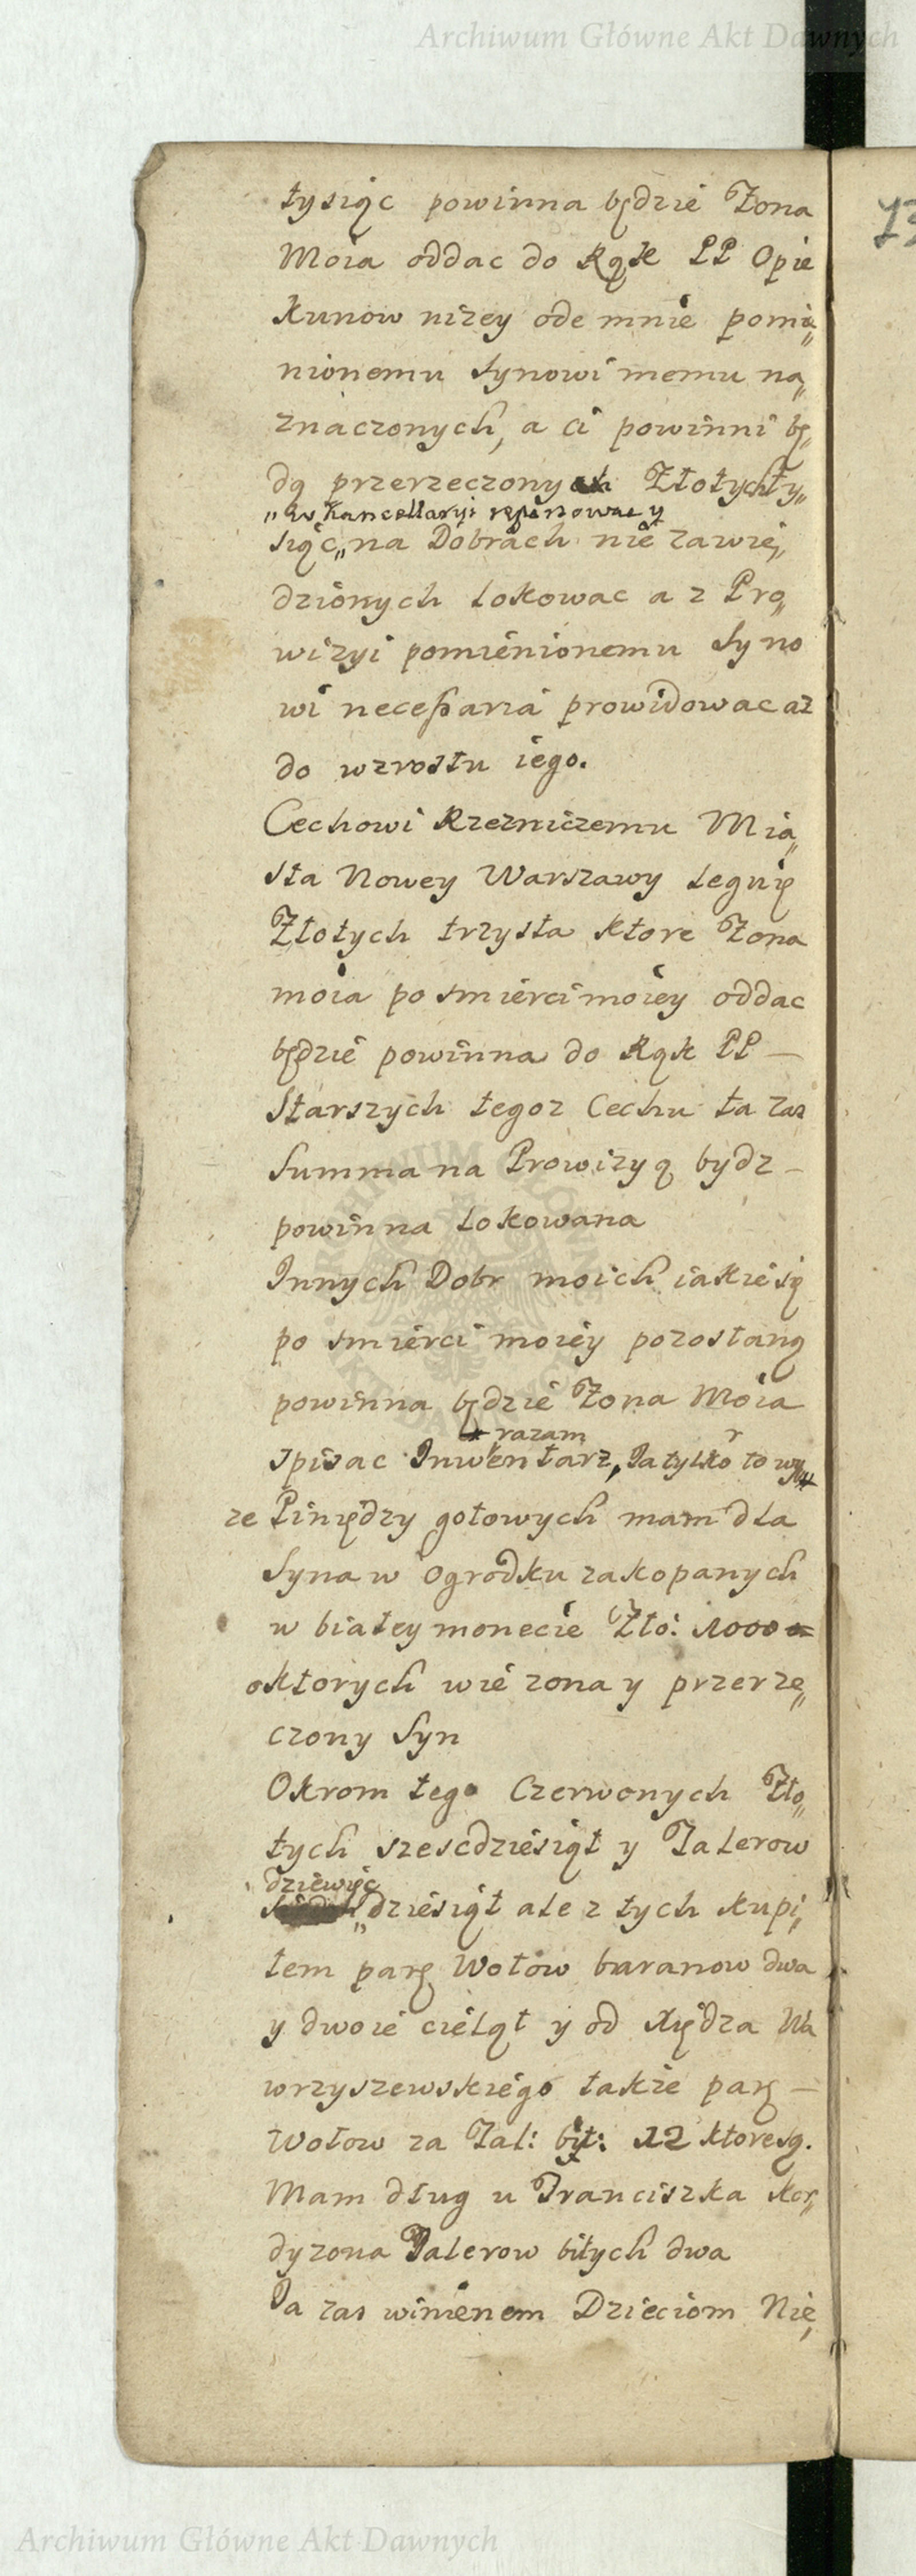 Archiwum Główne Akt Dawnych
tysiąc powinna będzie Żona
Moia oddac do Rąk PP Opie
kunow nizey ode mnie pomie„
nionemu Synowi memu na„
znaczonych, a ci powinni bę„
dą przerzeczonych Złotych ty„
„w Kancellaryi reponowac y
siąc„ na Dobrach nie zawie„
dzionych lokowac a z Pro„
wizyi pomienionemu Syno
wi necessaria prowidowac az
do wzrostu iego.
Cechowi Rzezniczemu Mia„
sta Nowey Warszawy leguię
Złotych trzysta ktore Żona
moia po smierci moiey oddac
będzie powinna do Rąk PP —
Starszych tegoz Cechu ta zas
Summa na Prowizyą bydz —
powinna lokowana
Innych Dobr moich iakie się
po smierci moiey pozostaną
powinna będzie Żona Moia
razam
spisac Inwentarz, Ja tylko to
ze Piniędzy gotowych mam dla
Syna w ogrodku zakopanych
w białey monecie Zło: 1000
o ktorych wie zona y przerze„
czony Syn
Okrom tego Czerwonych Zło„
tych szescdziesiąt y Talerow
dziewięc
„dziesiąt ale z tych kupi„
łem parę Wołow baranow dwa
y dwoie cieląt y od Xiędza Wa
wrzyszewskiego takze parę —
Wołow za Tal: bit: 12 ktore są.
Mam dług u Franciszka Kor„
dyzona Talerow bitych dwa
Ja zas winienem Dzieciom Nie„
Archiwum Główne Akt Dawnych